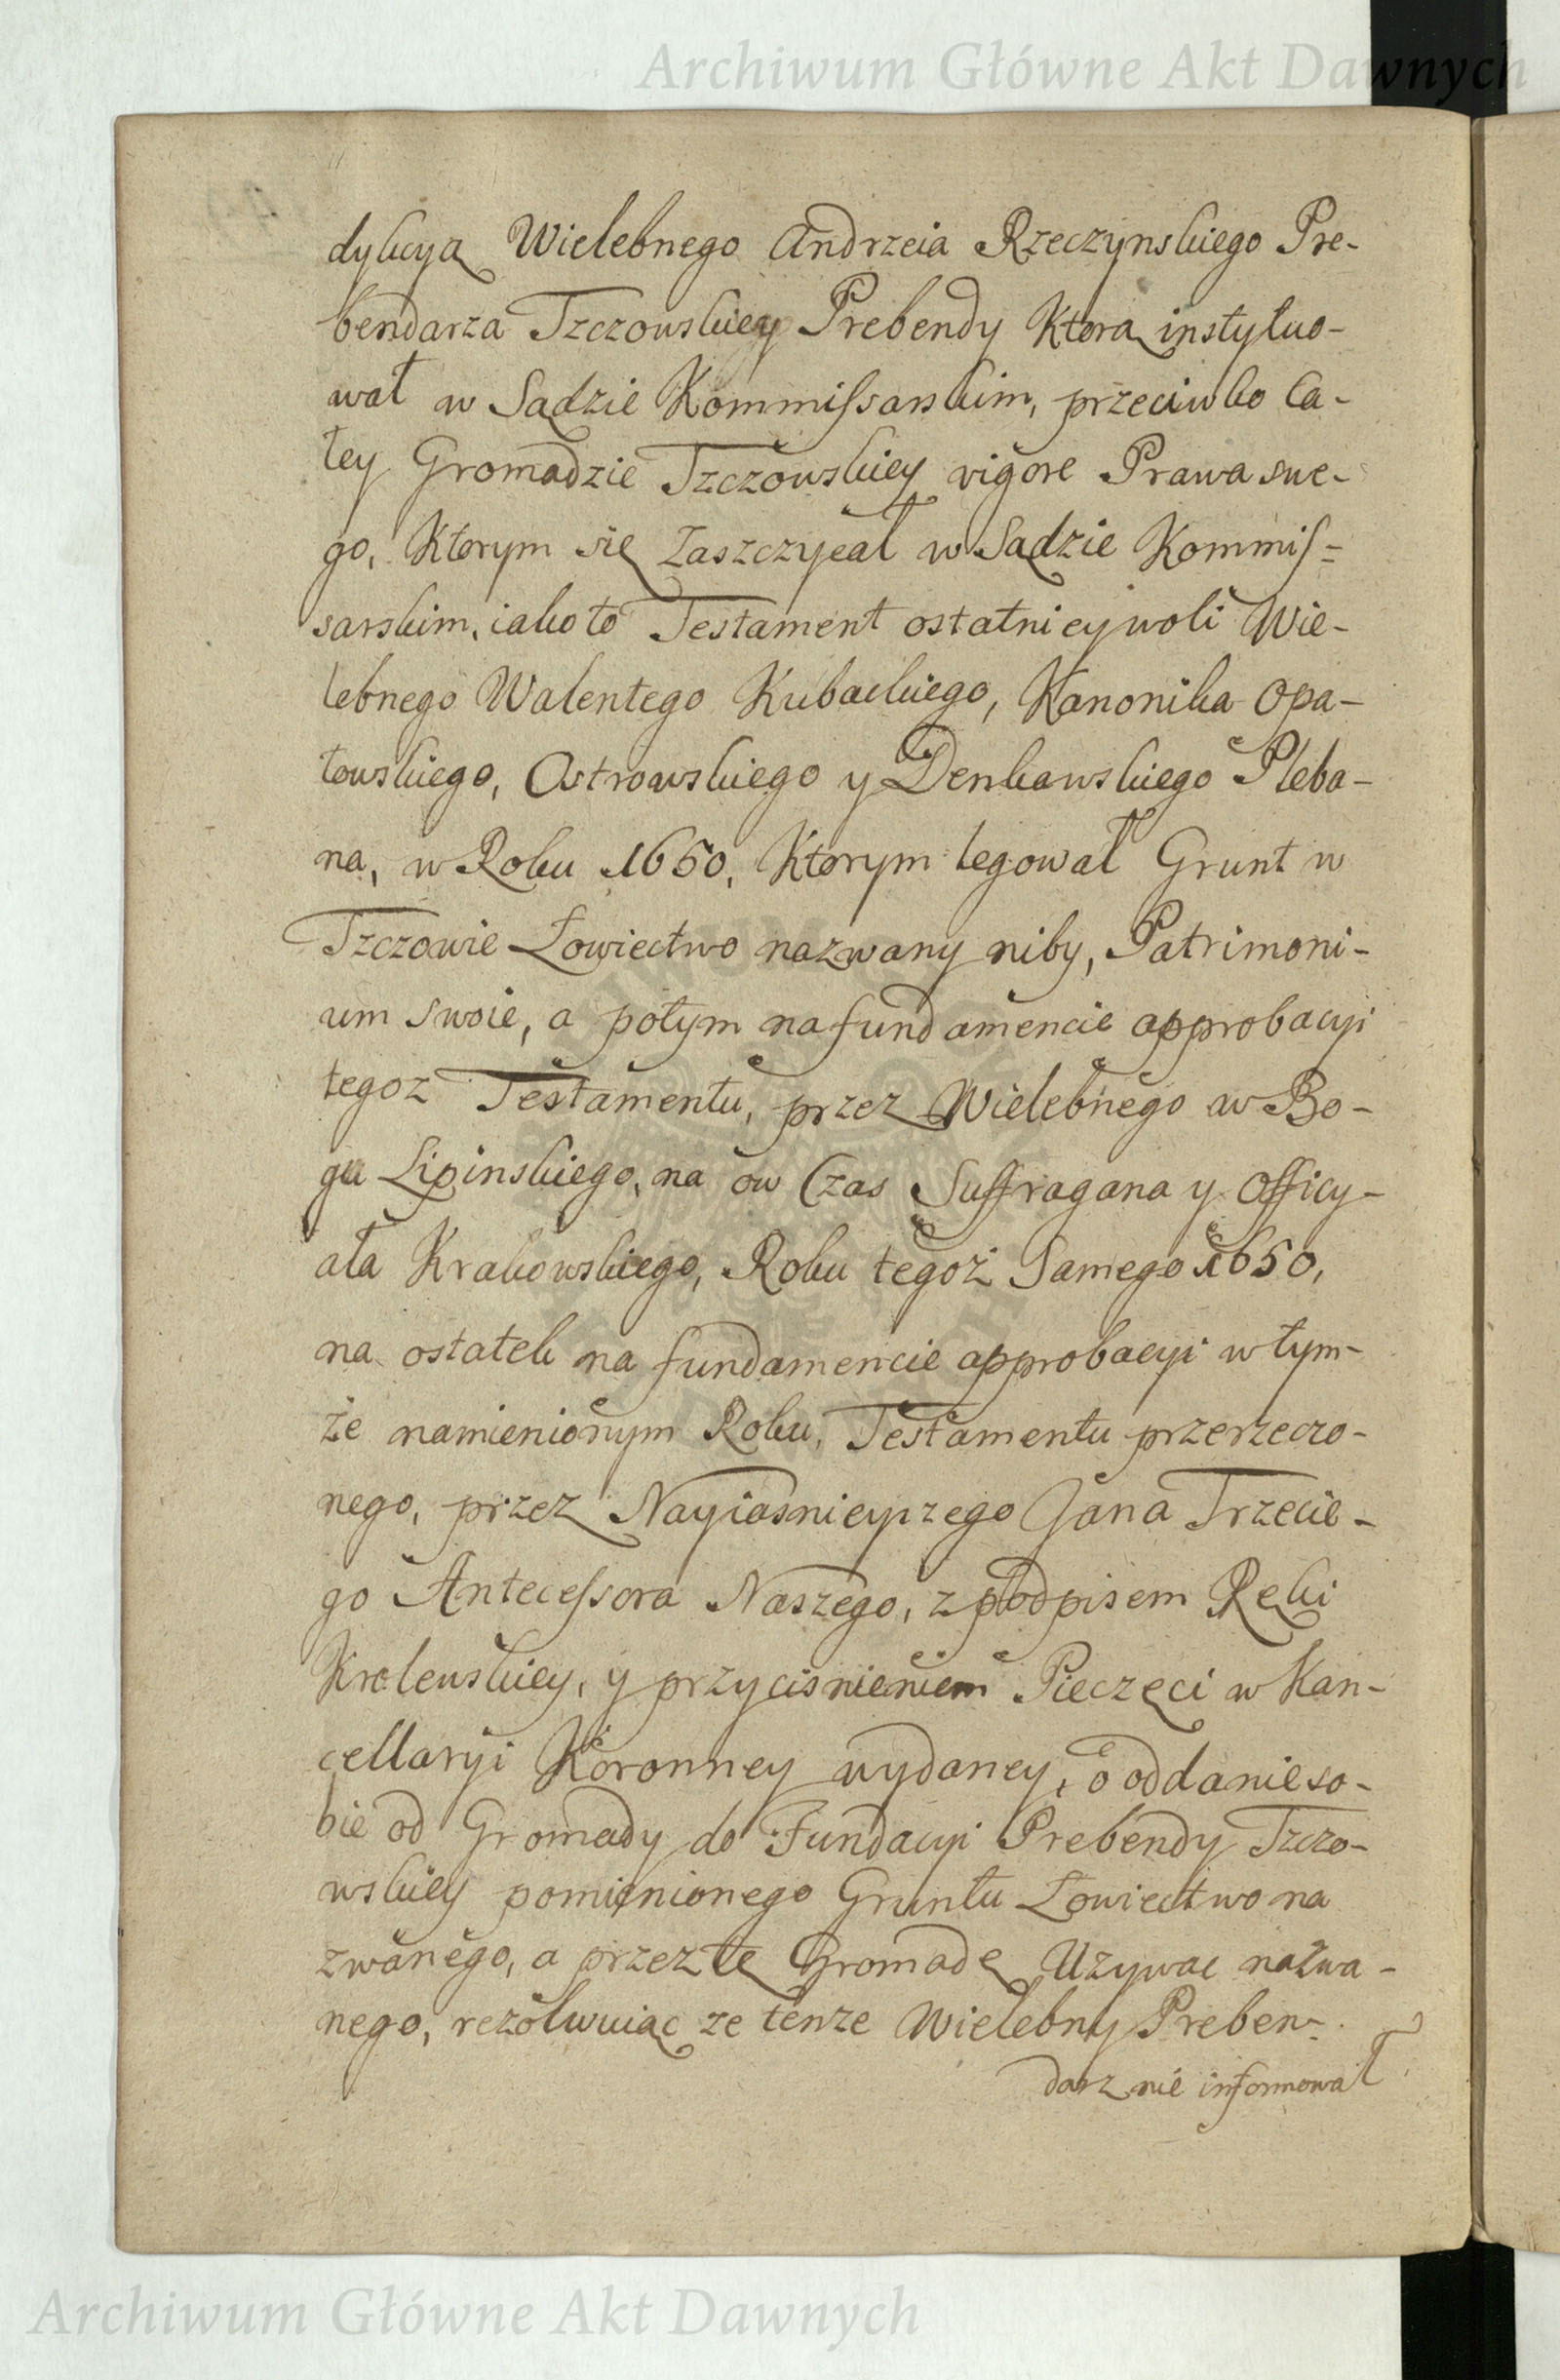 Archiwum Główne Akt Dawnych
dykcyą Wielebnego Andrzeia Rzeczynskiego Pre-
bendarza Tzczowskiey Prebendy Ktorą instytuo-
wał w Sądzie Kommissarskim, przeciwko Ca-
łey Gromadzie Tzczowskiey vigore Prawa swe-
go, Ktorym się Zaszczycał w Sądzie Kommis=
sarskim, iako to Testament ostatniey woli Wie-
lebnego Walentego Kubackiego, Kanonika Opa-
towskiego, Ostrowskiego y Denkowskiego Pleba-
na, w Roku 1650, Ktorym legował Grunt w
Tzczowie Łowiectwo nazwany niby, Patrimoni-
um swoie, a potym na fundamencie approbacyi
tegoz Testamentu, przez Wielebnego w Bo-
gu Lipinskiego, na ow Czas Suffragana y Officy-
ała Krakowskiego, Roku tegoż Samego 1650,
na ostatek na fundamencie approbacyi w tym-
że namienionym Roku, Testamentu przerzeczo-
nego, przez Nayiasnieyszego Jana Trzecie-
go Antecessora Naszego, z podpisem Ręki
Krolewskiey, y przycisnieniem Pieczęci w Kan-
cellaryi Koronney wydaney, o oddanie so-
bie od Gromady do Fundacyi Prebendy Tzczo-
wskiey pomienionego Gruntu Łowiectwo na
zwanego, a przez tę Gromadę Uzywac nazwa-
nego, rezolwuiąc ze tenze Wielebny Preben=
darz nie informował
Archiwum Główne Akt Dawnych